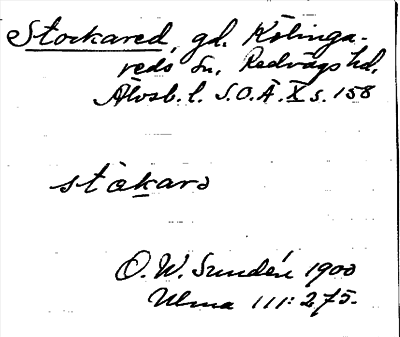 Stockared, gd. Kölinga-
reds sn, Redvägs hd,
Älvsb. l. S.O.Ä. X s. 158
ståkarə
O. W. Sundén 1900
Ulma 111: 275.